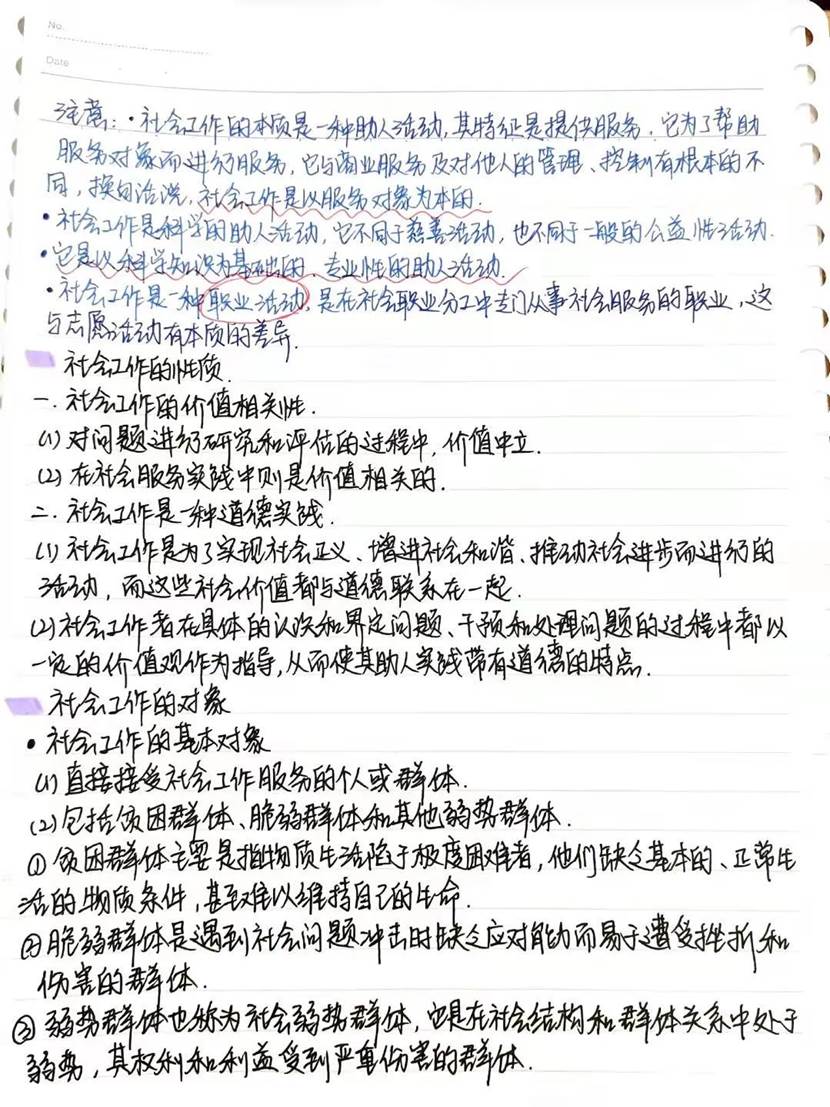 No.
Date
注意：·社会工作的本质是一种助人活动，其特征是提供服务．它为了帮助
服务对象而进行服务，它与商业服务及对他人的管理、控制有根本的不
同，换句话说，社会工作是以服务对象为本的．
·社会工作是科学的助人活动，它不同于慈善活动，也不同于一般的公益性活动．
·它是以科学知识为基础的、专业性的助人活动．
·社会工作是一种职业活动，是在社会职业分工中专门从事社会服务的职业，这
与志愿活动有本质的差异．
社会工作的性质．
一．社会工作的价值相关性．
(1) 对问题进行研究和评估的过程中，价值中立．
(2) 在社会服务实践中则是价值相关的．
二．社会工作是一种道德实践．
(1) 社会工作是为了实现社会正义、增进社会和谐、推动社会进步而进行的
活动，而这些社会价值都与道德联系在一起．
(2) 社会工作者在具体的认识和界定问题、干预和处理问题的过程中都以
一定的价值观作为指导，从而使其助人实践带有道德的特点．
社会工作的对象
·社会工作的基本对象
(1) 直接接受社会工作服务的个人或群体．
(2) 包括贫困群体、脆弱群体和其他弱势群体．
① 贫困群体主要是指物质生活陷于极度困难者，他们缺乏基本的、正常生
活的物质条件，甚至难以维持自己的生命．
② 脆弱群体是遇到社会问题冲击时缺乏应对能力而易于遭受挫折和
伤害的群体．
③ 弱势群体也称为社会弱势群体，也是在社会结构和群体关系中处于
弱势，其权利和利益受到严重伤害的群体．